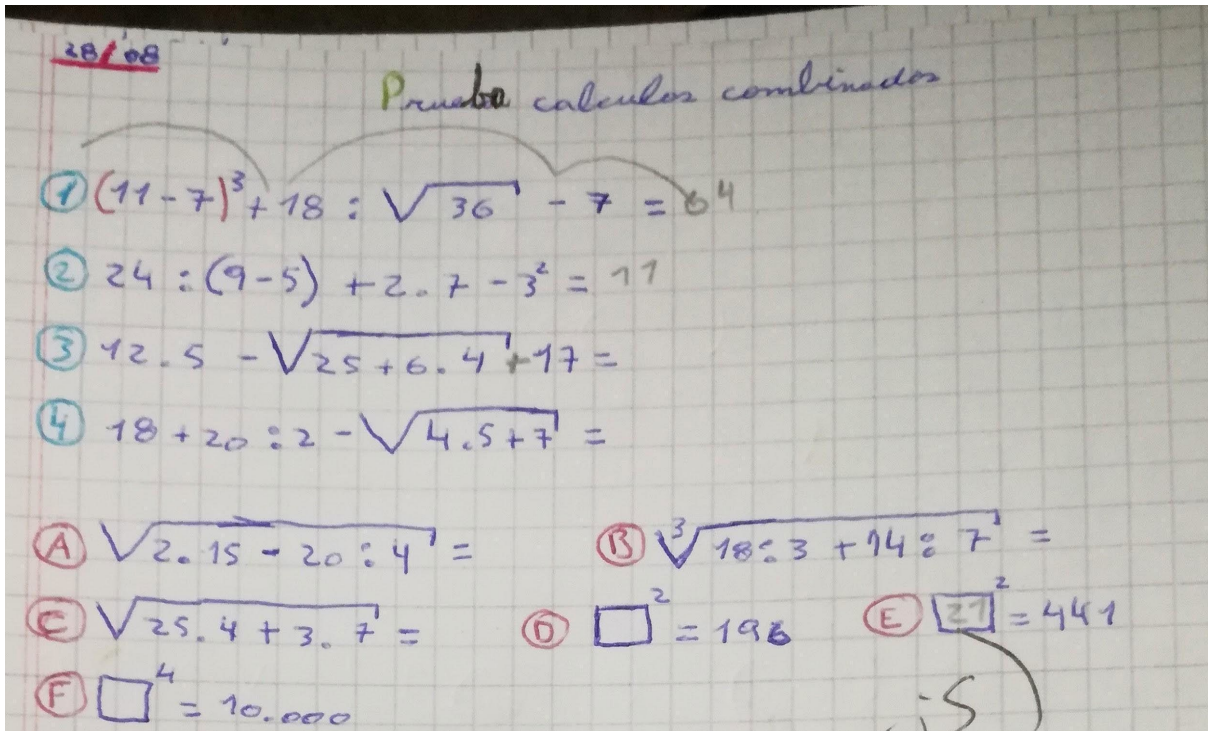 28/08
Prueba calculos combinados
① (11-7)³ + 18 : √36 - 7 = 64
② 24 : (9-5) + 2 . 7 - 3² = 11
③ 12 . 5 - √(25 + 6 . 4) + 17 =
④ 18 + 20 : 2 - √(4 . 5 + 7) =
Ⓐ √(2 . 15 - 20 : 4) = Ⓑ ³√(18 : 3 + 14 : 7) =
Ⓒ √(25 . 4 + 3 . 7) = Ⓓ □² = 196 Ⓔ 21² = 441
Ⓕ □⁴ = 10.000